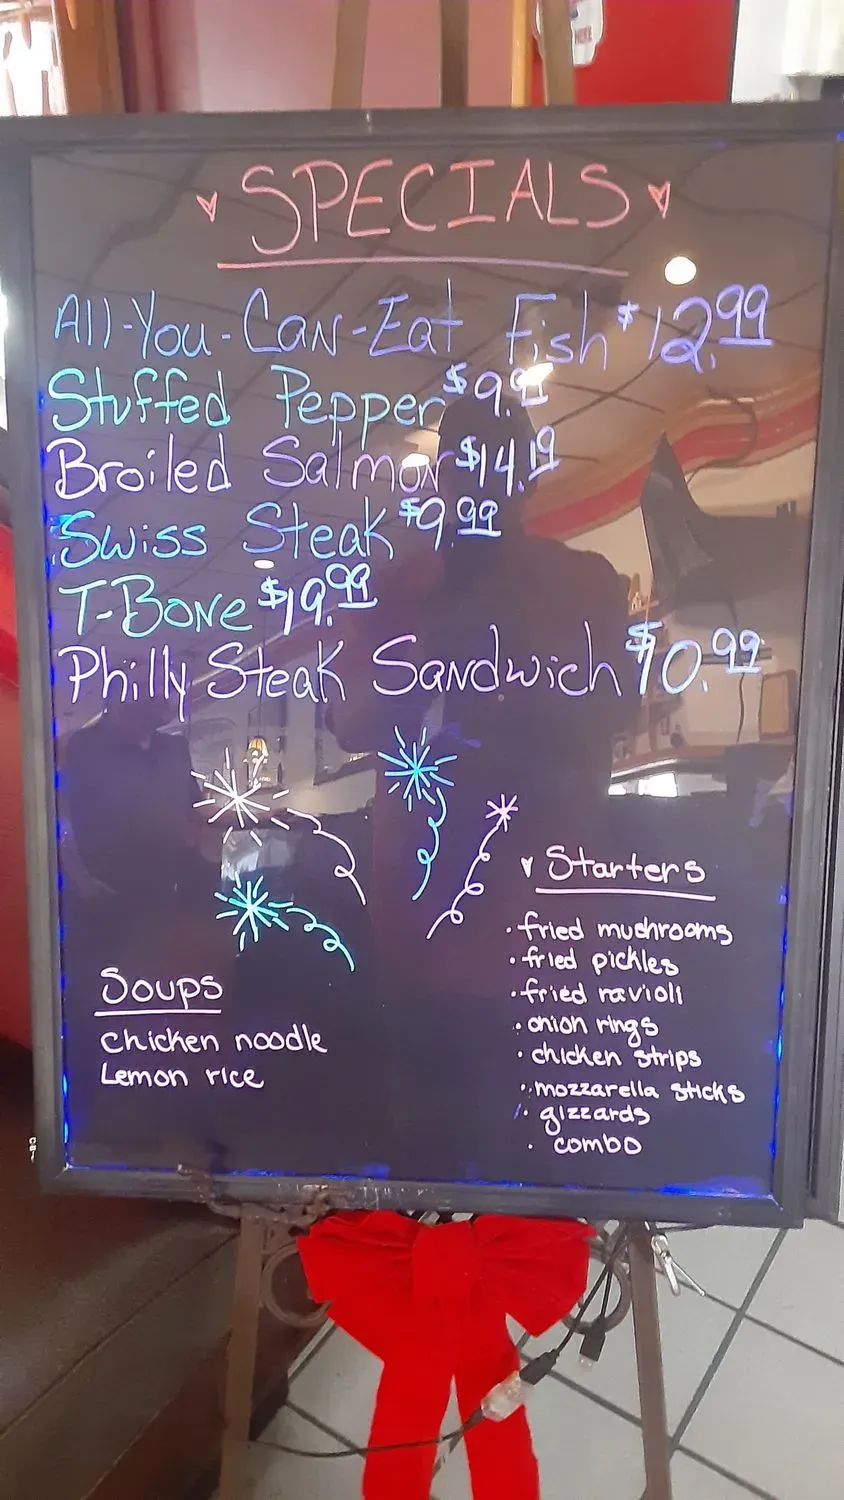 SPECIALS
All-You-Can-Eat Fish $12.99
Stuffed Pepper
Broiled Salmon $14.19
Swiss Steak $9.99
T-Bone $19.99
Philly Steak Sandwich $10.99
Starters
fried mushrooms
fried pickles
fried ravioli
onion rings
chicken strips
mozzarella sticks
gizzards
combo
Soups
chicken noodle
Lemon rice